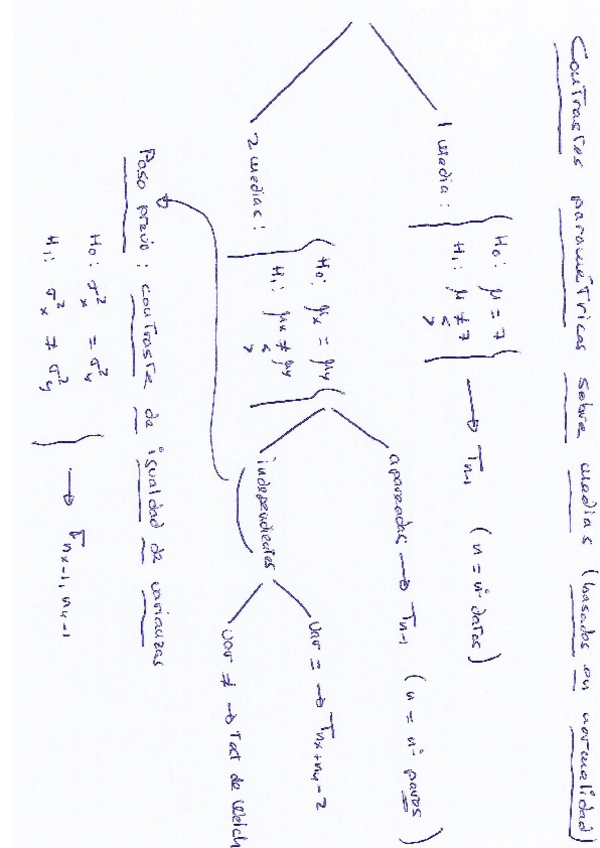 Contrastes paramétricos sobre medias (basados en normalidad)
1 media: { H₀: μ = 7
H₁: μ ≠ 7
<
> } → Tₙ₋₁ (n = nº datos)
2 medias: { H₀: μₓ = μᵧ
H₁: μₓ ≠ μᵧ
<
> }
apareadas → Tₙ₋₁ (n = nº pares)
independientes
var = → Tₙₓ₊ₙᵧ₋₂
var ≠ → Test de Welch
Paso previo: contraste de igualdad de varianzas
H₀: σ²ₓ = σ²ᵧ
H₁: σ²ₓ ≠ σ²ᵧ } → Fₙₓ₋₁, ₙᵧ₋₁